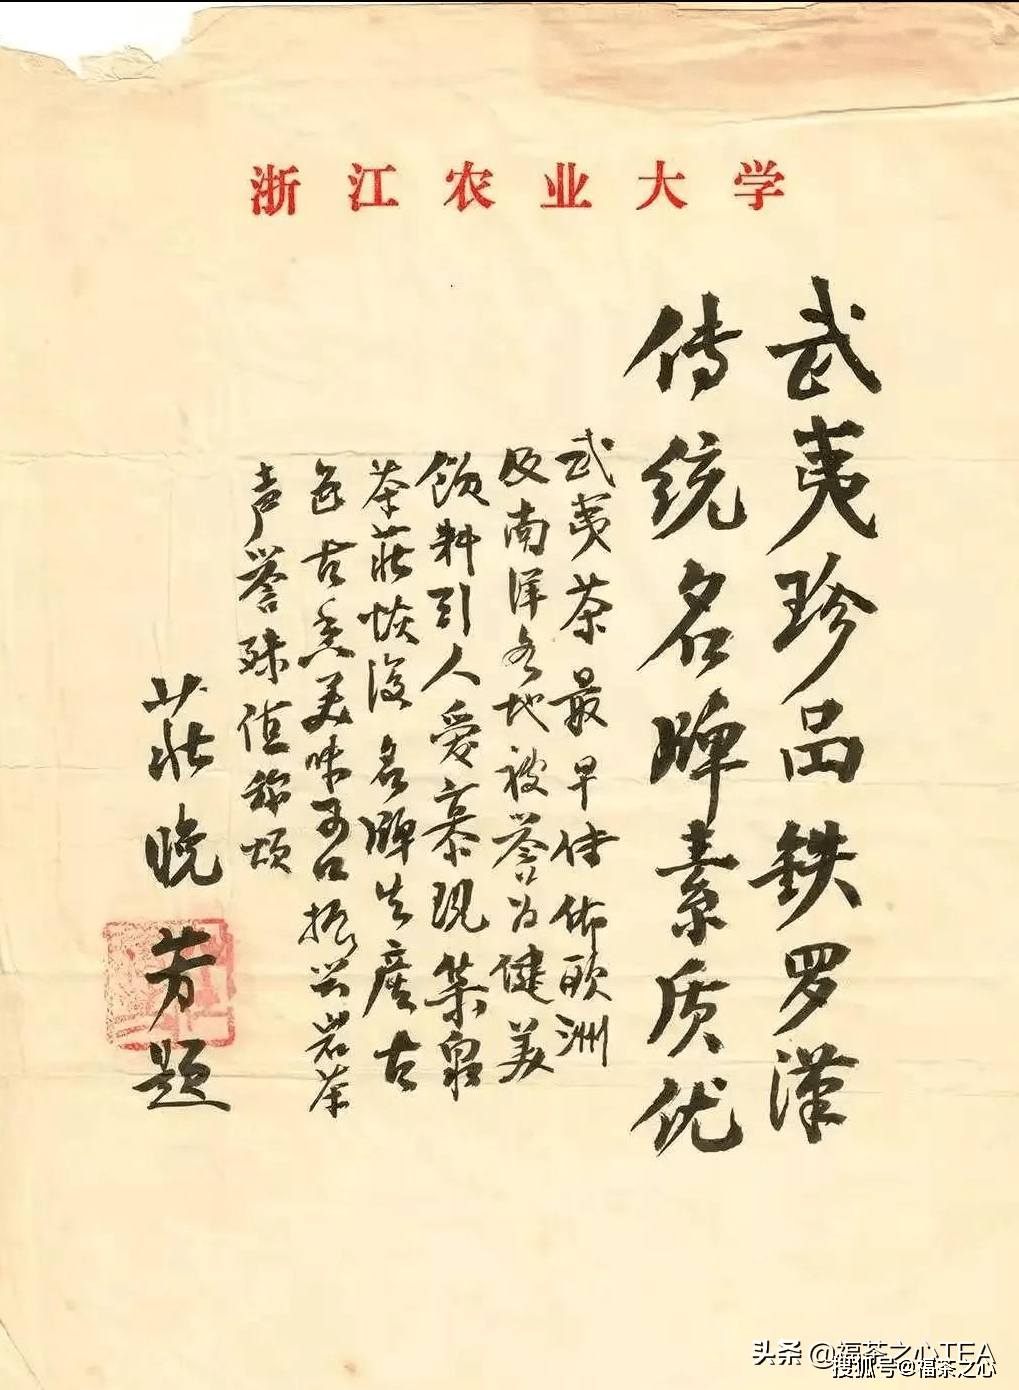 浙江农业大学
武夷珍品鉄罗漢
传统名牌素质优
武夷茶最早传佈欧洲
及南洋各地被誉为健美
飲料引人爱慕现集泉
茶莊恢復名牌生産古
色古香美味可口振兴岩茶
声誉殊值称颂
莊晚芳题
头条 @福茶之心TEA
搜狐号@福茶之心